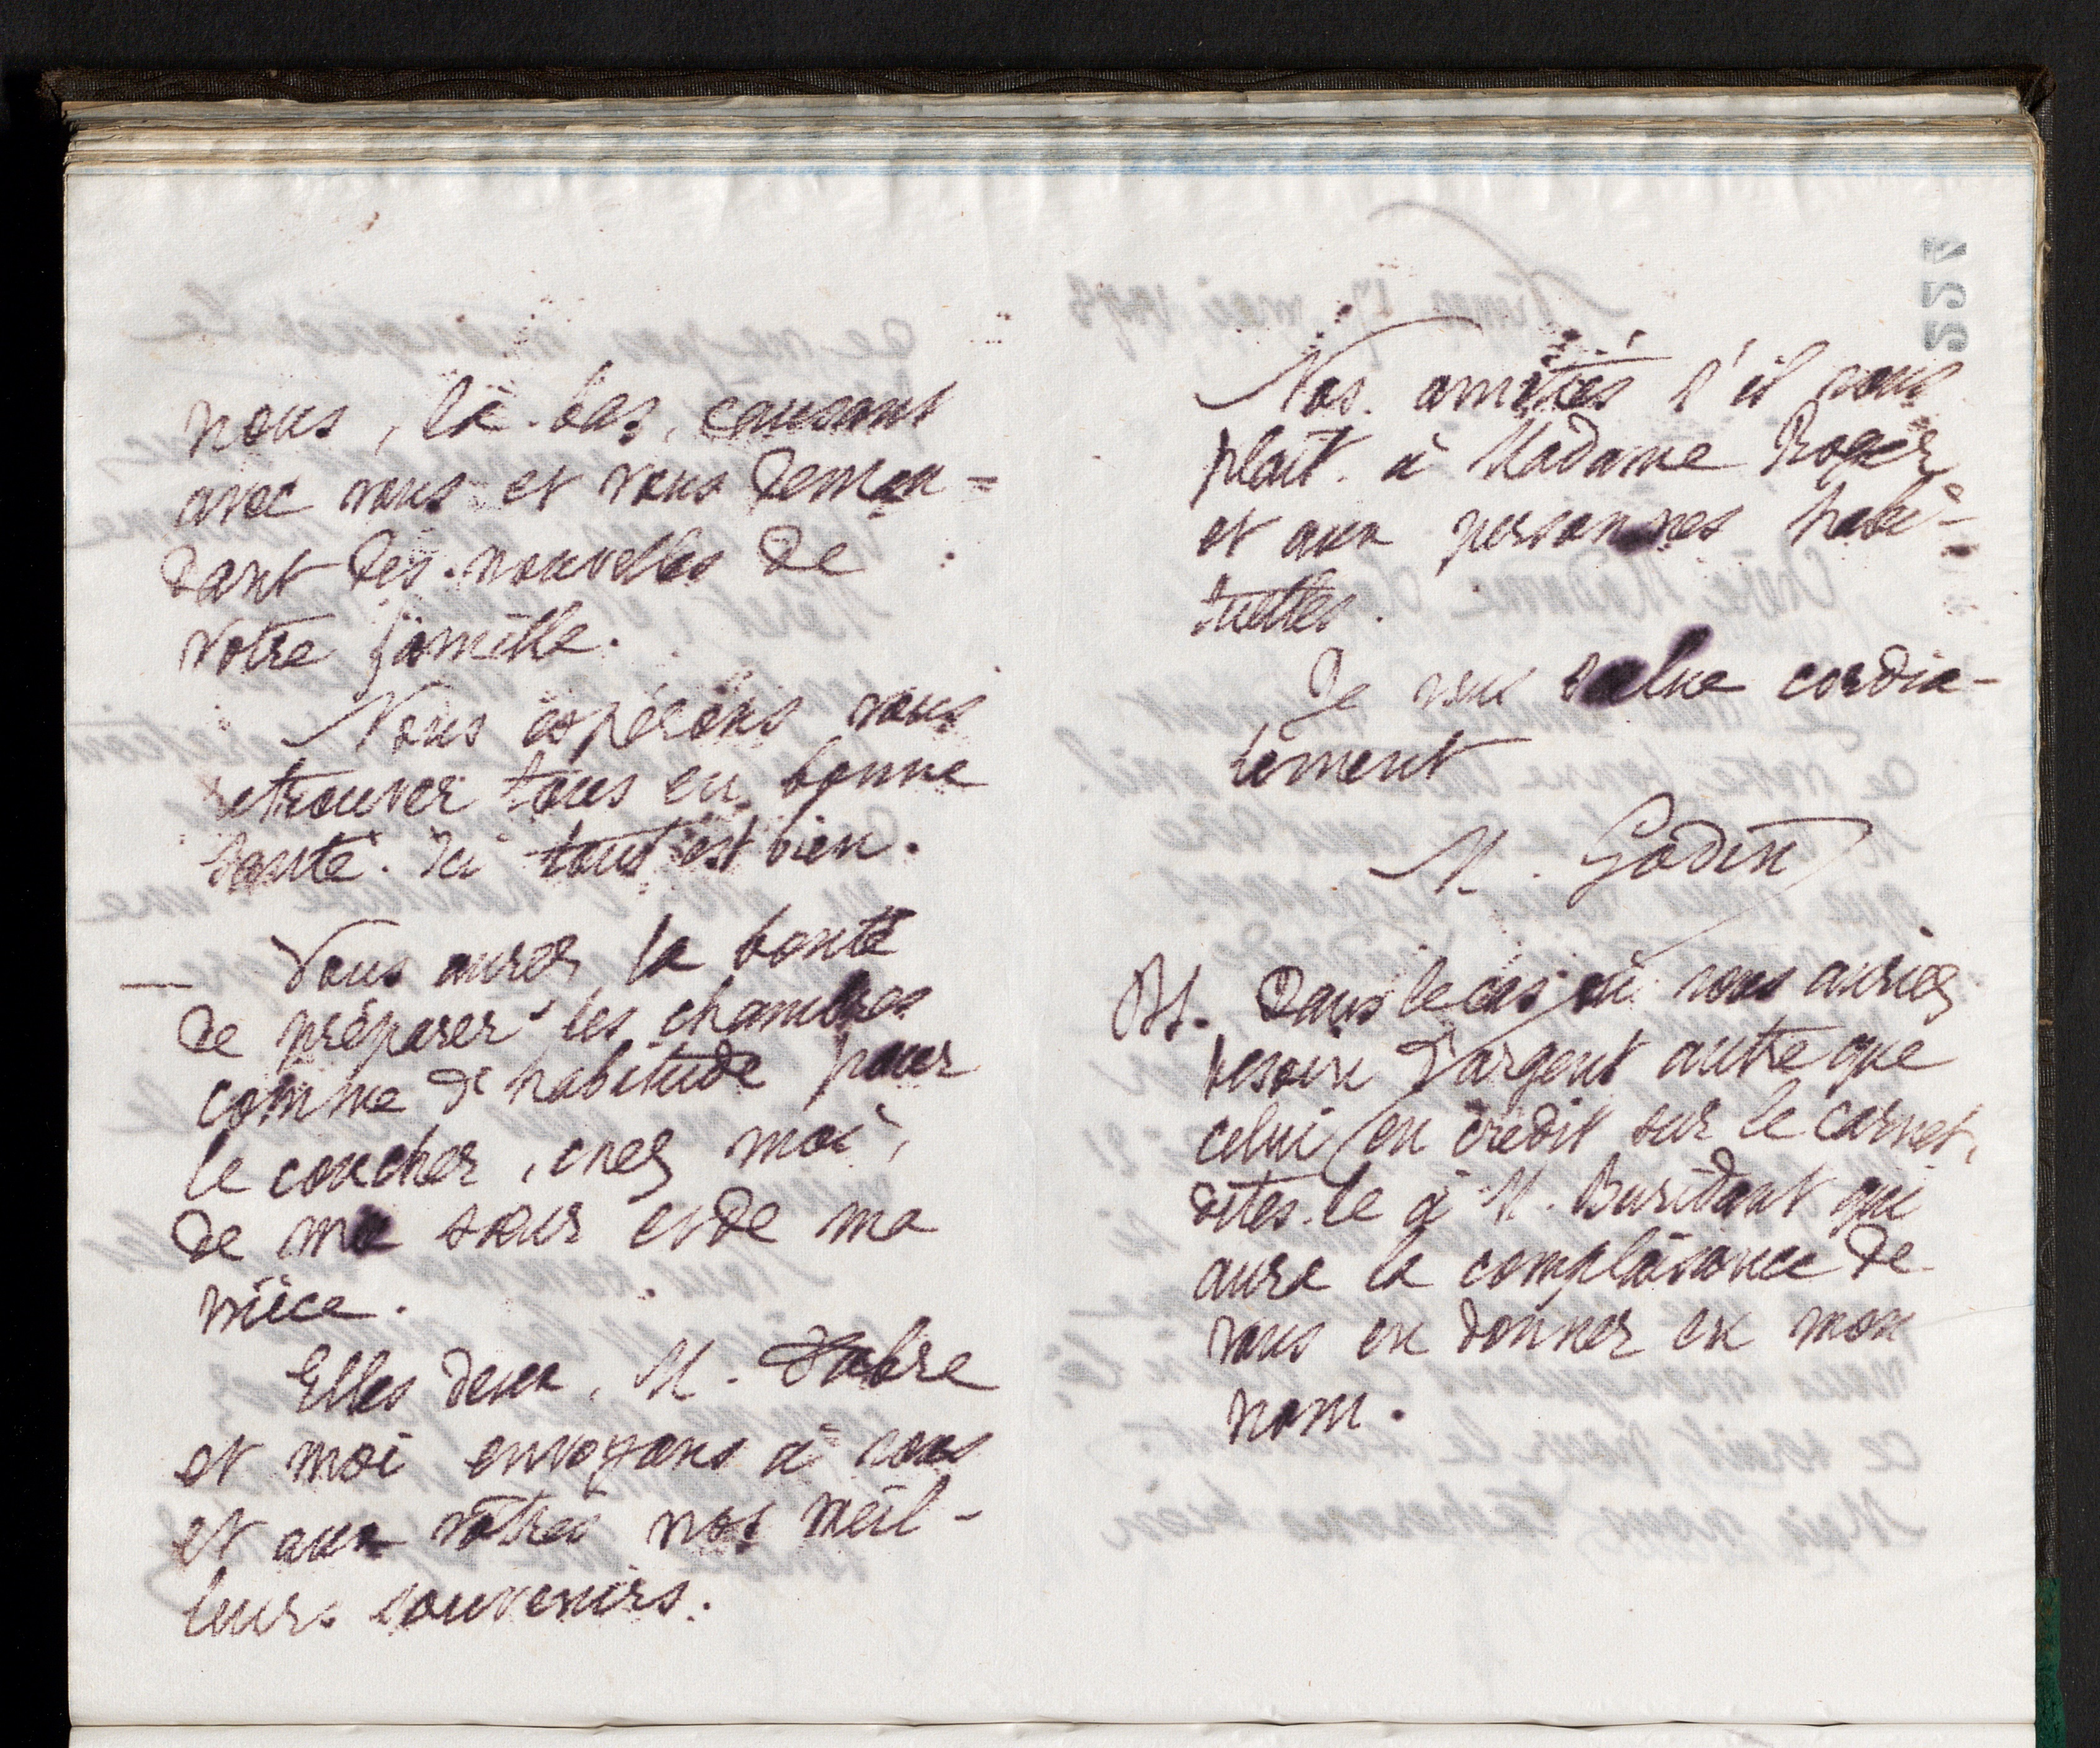 nous, là-bas, causant
avec vous et vous deman=
dant des nouvelles de
votre famille.
Nous espérons vous
retrouver tous en bonne
santé. Ici tout est bien.
— Vous aurez la bonté
de préparer les chambres
comme d'habitude pour
le coucher, chez moi,
de ma sœur et de ma
nièce.
Elles deux, M. Fabre
et moi envoyons à vous
et aux vôtres nos meil-
leurs souvenirs.
Nos amitiés s'il vous
plaît à Madame Roger
et aux personnes habi-
tuelles.
Je vous salue cordia-
lement
M. Godin
PS. Dans le cas où vous auriez
besoin d'argent autre que
celui en crédit sur le carnet,
dites-le à M. Buridant qui
aura la complaisance de
vous en donner en mon
nom.